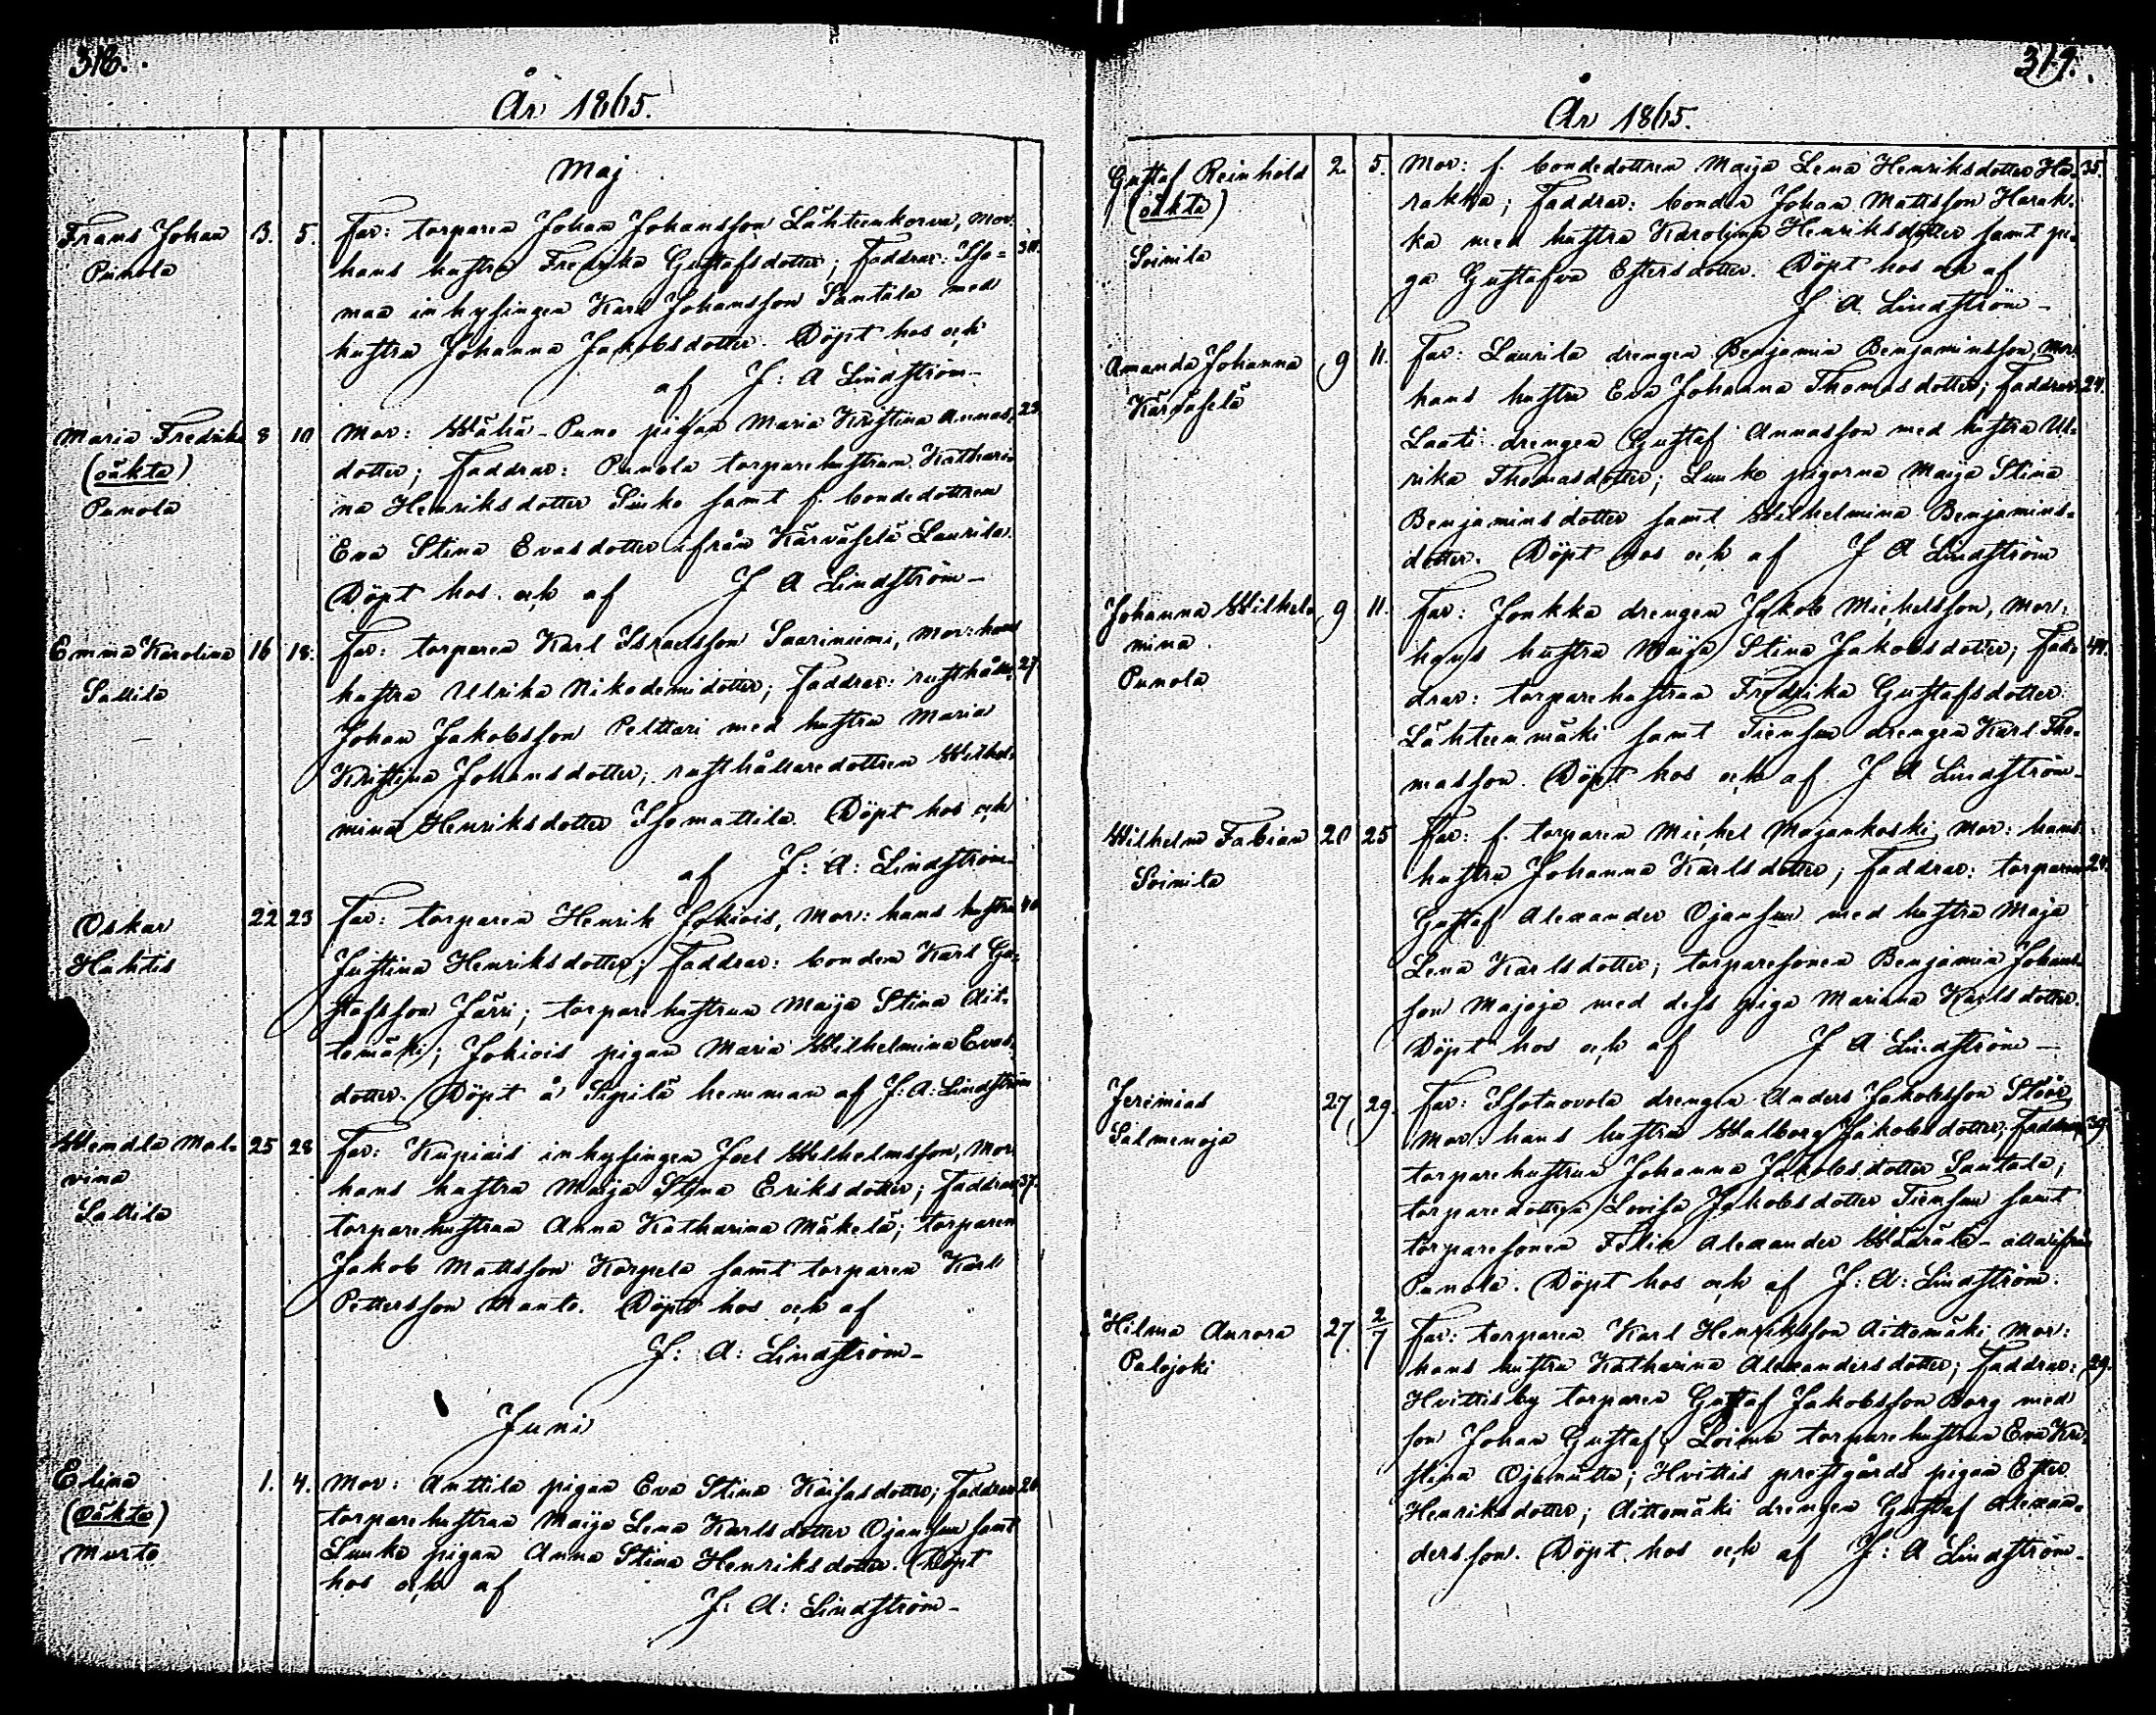 318.
År 1865.
Maj
Frans Johan 3. 5. Far: torparen Johan Johansson Lähteenkorva, Mor:
Punola hans hustru Fredrika Gustafsdotter; Faddrar: Iso- 30.
maa inhysingen Karl Johansson Santala med
hustru Johanna Jakobsdotter. Döpt hos och
af J: A Lindström-
Maria Fredrika 8 10 Mor: Wähä-Puno pigan Maria Kristina Annas- 23.
(oäkta) dotter; Faddrar: Punola torparehustrun Kathari-
Punola na Henriksdotter Sinko samt f. bondedottren
Eva Stina Evasdotter ifrån Kärväselä Laurila.
Döpt hos och af J A Lindström-
Emma Karolina 16 18. Far: torparen Karl Israelsson Saariniemi, Mor: hans
Sallila hustru Ulrika Nikodemidotter; Faddrar: rusthåll. 27.
Johan Jakobsson Pelttari med hustru Maria
Kristina Johansdotter; rusthållaredottren Wilhel-
mina Henriksdotter Isomattila. Döpt hos och
af J: A: Lindström-
Oskar 22 23 Far: torparen Henrik Jokiois, Mor: hans hustru 40
Huhtis Justina Henriksdotter; Faddrar: bonden Karl Gu-
stafsson Järri; torparehustrun Maija Stina Ait-
tomäki; Jokiois pigan Maria Wilhelmina Evas-
dotter. Döpt å Sipilä hemman af J: A: Lindström
Wendla Mal- 25 28 Far: Kupiais inhysingen Joel Wilhelmsson, Mor:
vina hans hustru Maija Stina Eriksdotter; Faddrar: 37.
Sallila torparehustrun Anna Katharina Mäkelä; torparen
Jakob Mattsson Karpela samt torparen Karl
Pettersson Manto. Döpt hos och af
J: A: Lindström-
Juni
Elina 1. 4. Mor: Anttila pigan Eva Stina Kaisasdotter; Faddrar: 20.
(oäkta) torparehustrun Maija Lena Karlsdotter Ojansuu samt
Murto Lunka pigan Anna Stina Henriksdotter. Döpt
hos och af
J: A: Lindström-
319.
År 1865.
Gustaf Reinhold 2. 5. Mor: f. bondedottren Maija Lena Henriksdotter Ha- 35.
(oäkta) rakka; Faddrar: bonden Johan Mattsson Harak-
ka med hustru Karolina Henriksdotter samt pi-
Soinila ga Gustafva Estersdotter. Döpt hos och af
J A. Lindström-
Amanda Johanna 9 11. Far: Laurila drengen Benjamin Benjaminsson, Mor:
Kärväselä hans hustru Eva Johanna Thomasdotter; Faddrar: 24.
Laati drengen Gustaf Annasson med hustru Ul-
rika Thomasdotter; Luuko pigorna Maija Stina
Benjaminsdotter samt Wilhelmina Benjamins-
dotter. Döpt hos och af J A Lindström
Johanna Wilhel- 9 11. Far: Jonkka drengen Jakob Michelsson, Mor:
mina hans hustru Maija Stina Jakobsdotter; Fad- 40.
Punola drar: torparehustrun Fredrika Gustafsdotter
Lähteenmäki samt Tiensuu drengen Karl Tho-
masson. Döpt hos och af J A Lindström-
Wilhelm Fabian 20 25 Far: f. torparen Michel Majankoski, Mor: hans
Soinila hustru Johanna Karlsdotter; Faddrar: torparen 24.
Gustaf Alexander Ojansuu med hustru Maja
Lena Karlsdotter; torparesonen Benjamin Johans-
son Majoja med dess piga Mariana Karlsdotter.
Döpt hos och af J A Lindström-
Jerimias 27 29. Far: Isotuovola drengen Anders Jakobsson Stöör,
Salmenoja Mor: hans hustru Walborg Jakobsdotter; Faddrar: 39.
torparehustrun Johanna Jakobsdotter Santala;
torparedottren Lovisa Jakobsdotter Tiensuu samt
torparesonen Felix Alexander Määrälä - alla ifrån
Punola. Döpt hos och af J: A: Lindström.
Hilma Aurora 27. 2/7 Far: torparen Karl Henriksson Aittomäki, Mor:
Palojoki hans hustru Katharina Alexandersdotter; Faddrar: 29.
Hvittisby torparen Gustaf Jakobsson Borg med
son Johan Gustaf; Loima torparehustrun Eva Kri-
stina Ojanätta; Hvittis prestgårds pigan Ester
Henriksdotter; Aittomäki drengen Gustaf Alexan-
dersson. Döpt hos och af J: A Lindström-